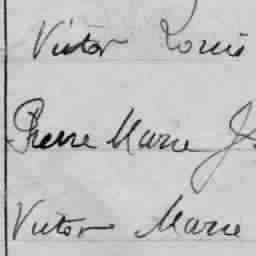 Victor Louis
Pierre Marie J
Victor Marie